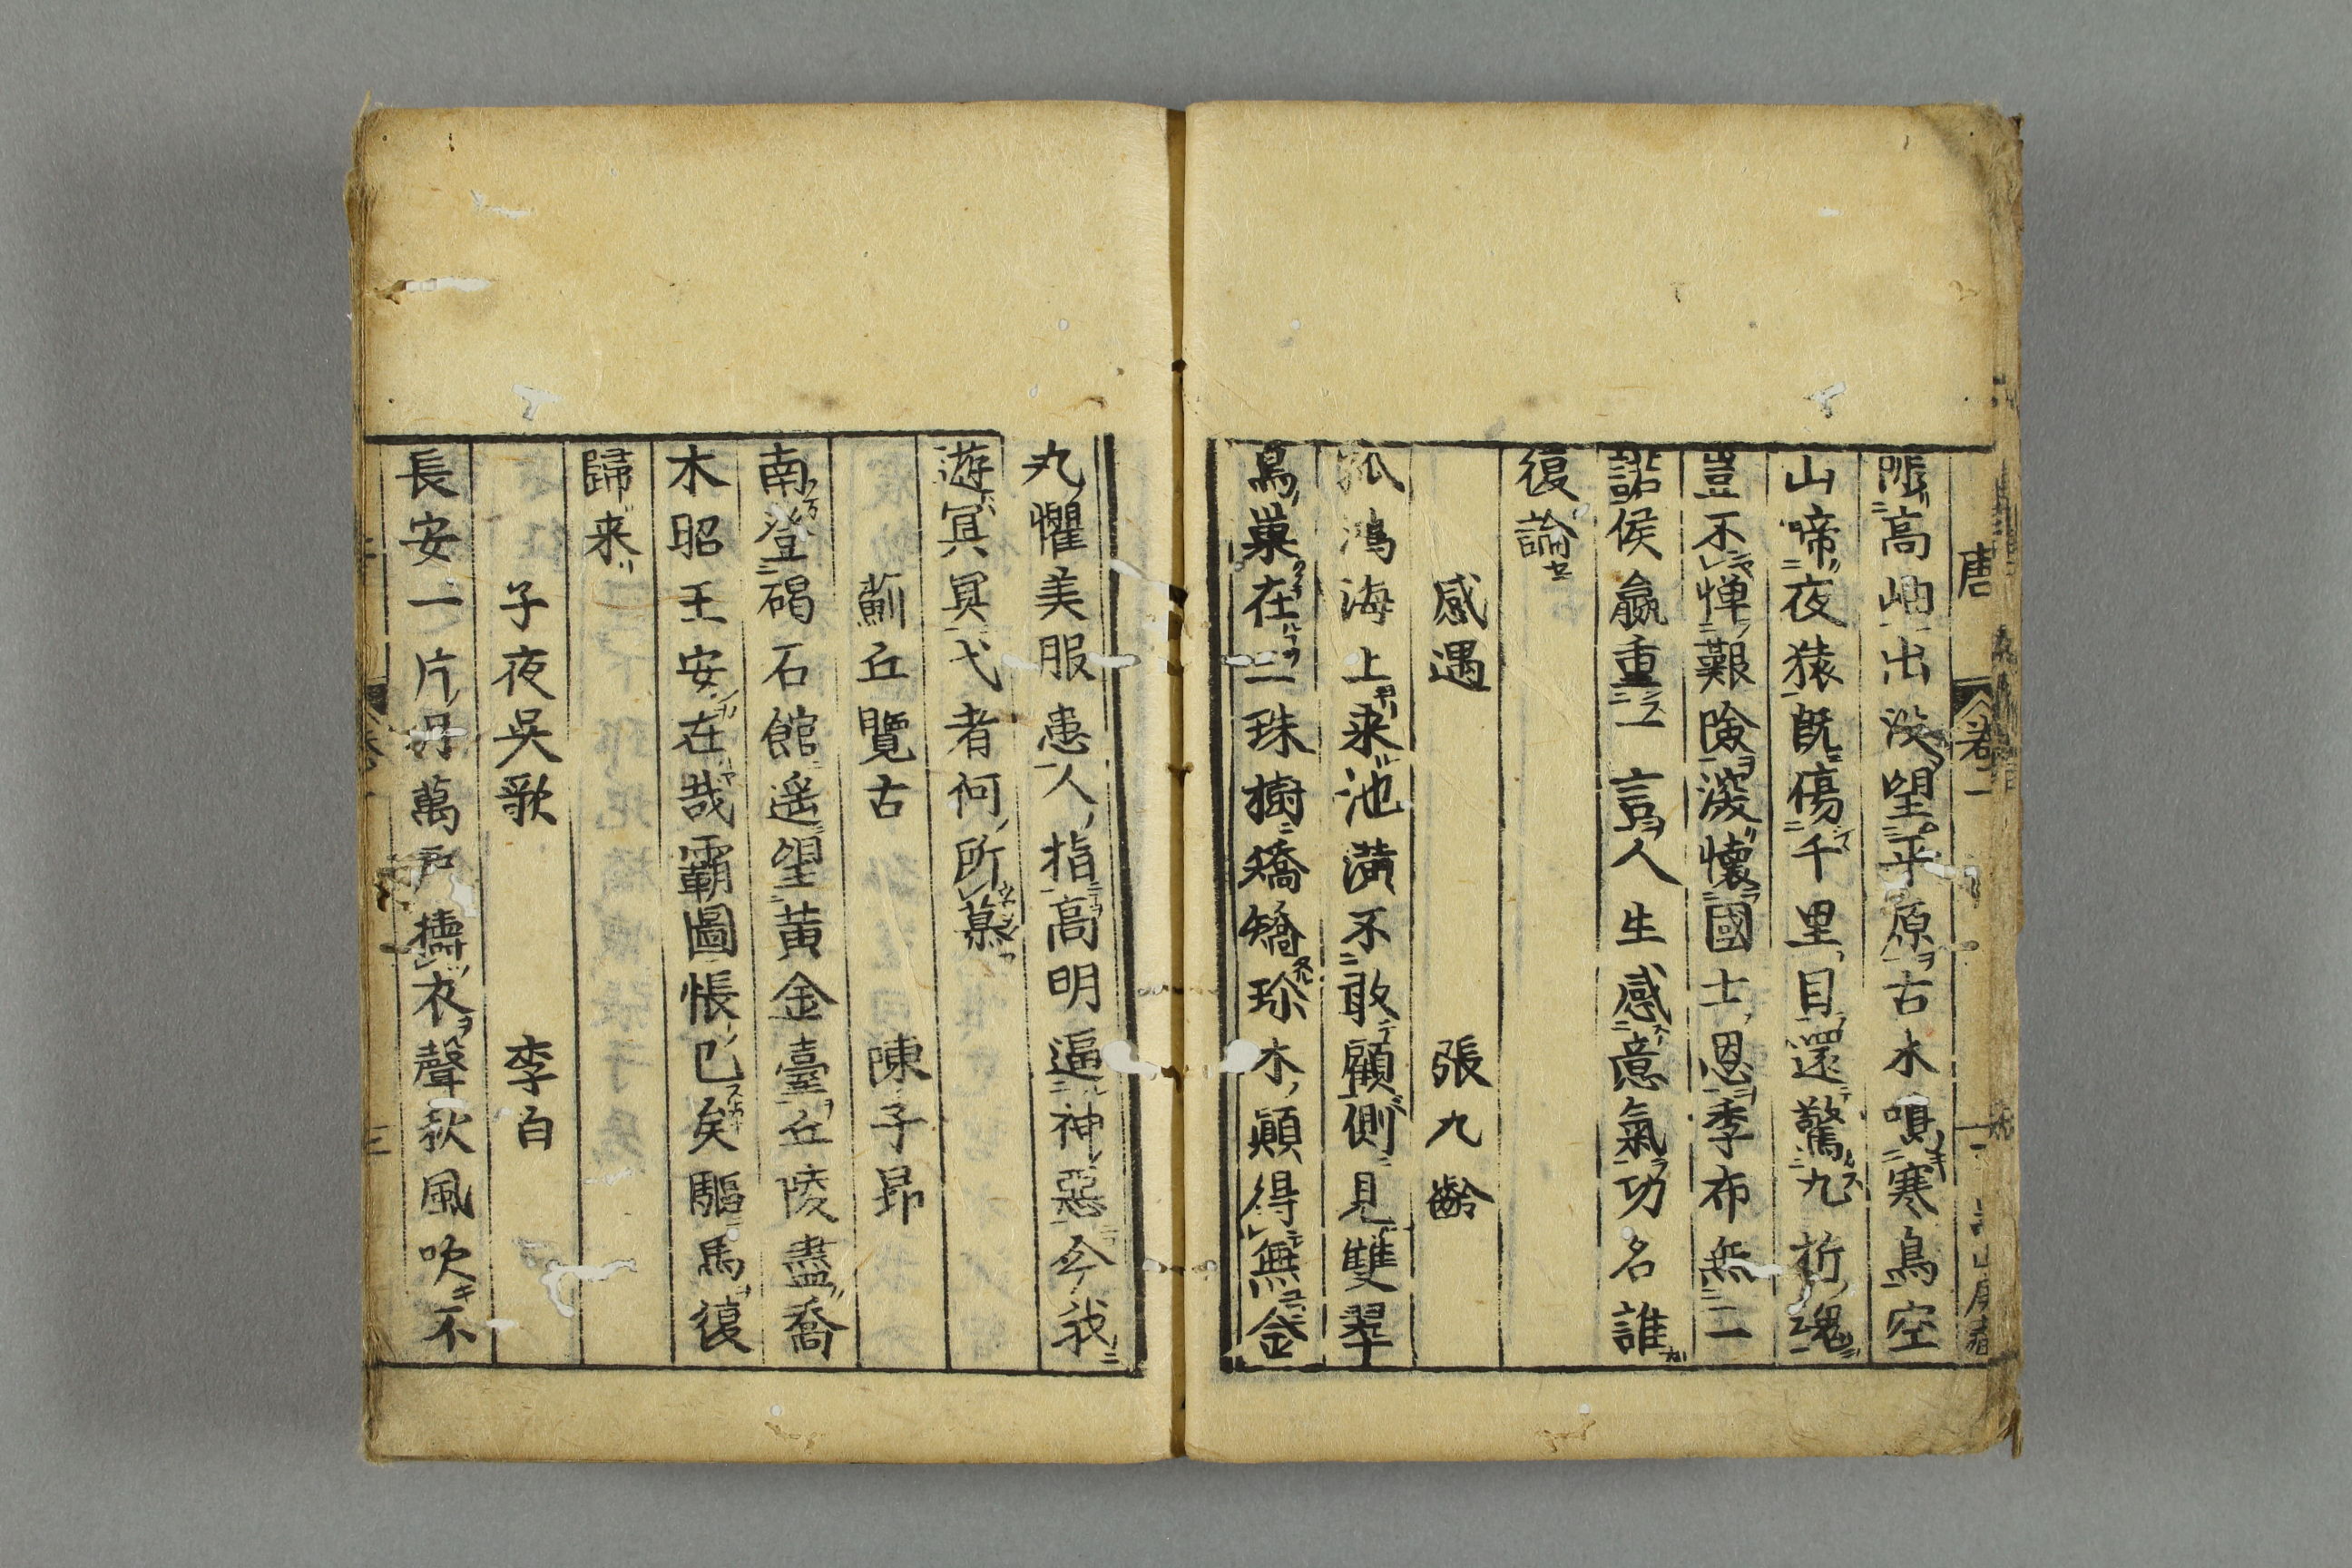 唐 巻一
陟高岫出没望平原古木鳴寒鳥空
山啼夜猿既傷千里目還驚九折魂
豈不憚艱険深懐國士恩季布無二
諾侯嬴重一言人生感意氣功名誰
復論
感遇 張九齢
孤鴻海上来池潢不敢顧側見雙翠
鳥巣在三珠樹矯矯珍木顚得無金
丸懼美服患人指高明逼神惡今我
遊冥冥弋者何所慕
薊丘覽古 陳子昻
南登碣石館遥望黄金臺丘陵盡喬
木昭王安在哉霸圖悵已矣驅馬復
歸来
子夜吳歌 李白
長安一片月萬戸擣衣聲秋風吹不
三